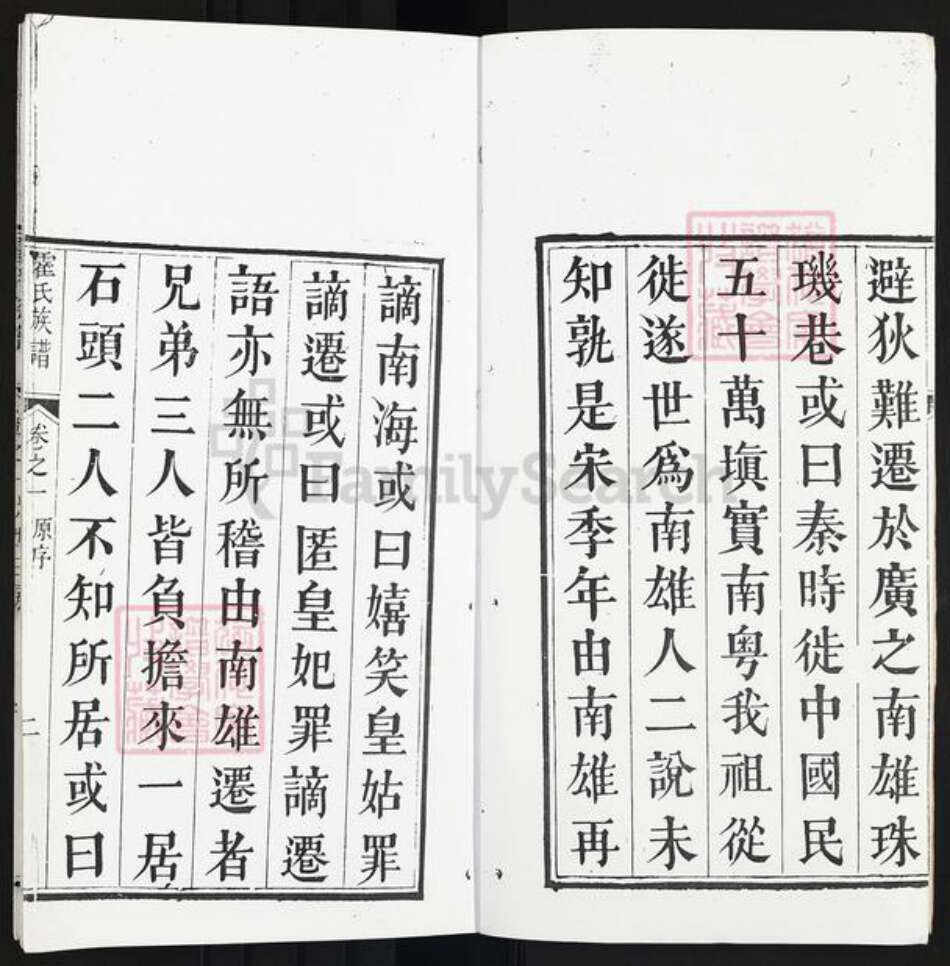 避狄難遷於廣之南雄珠
璣巷或曰秦時徙中國民
五十萬塡實南粤我祖從
徙遂世爲南雄人二說未
知孰是宋季年由南雄再
謫南海或曰嬉笑皇姑罪
謫遷或曰匿皇妃罪謫遷
語亦無所稽由南雄遷者
兄弟三人皆負擔來一居
石頭二人不知所居或曰
霍氏族譜
卷之一 原序
二
FamilySearch